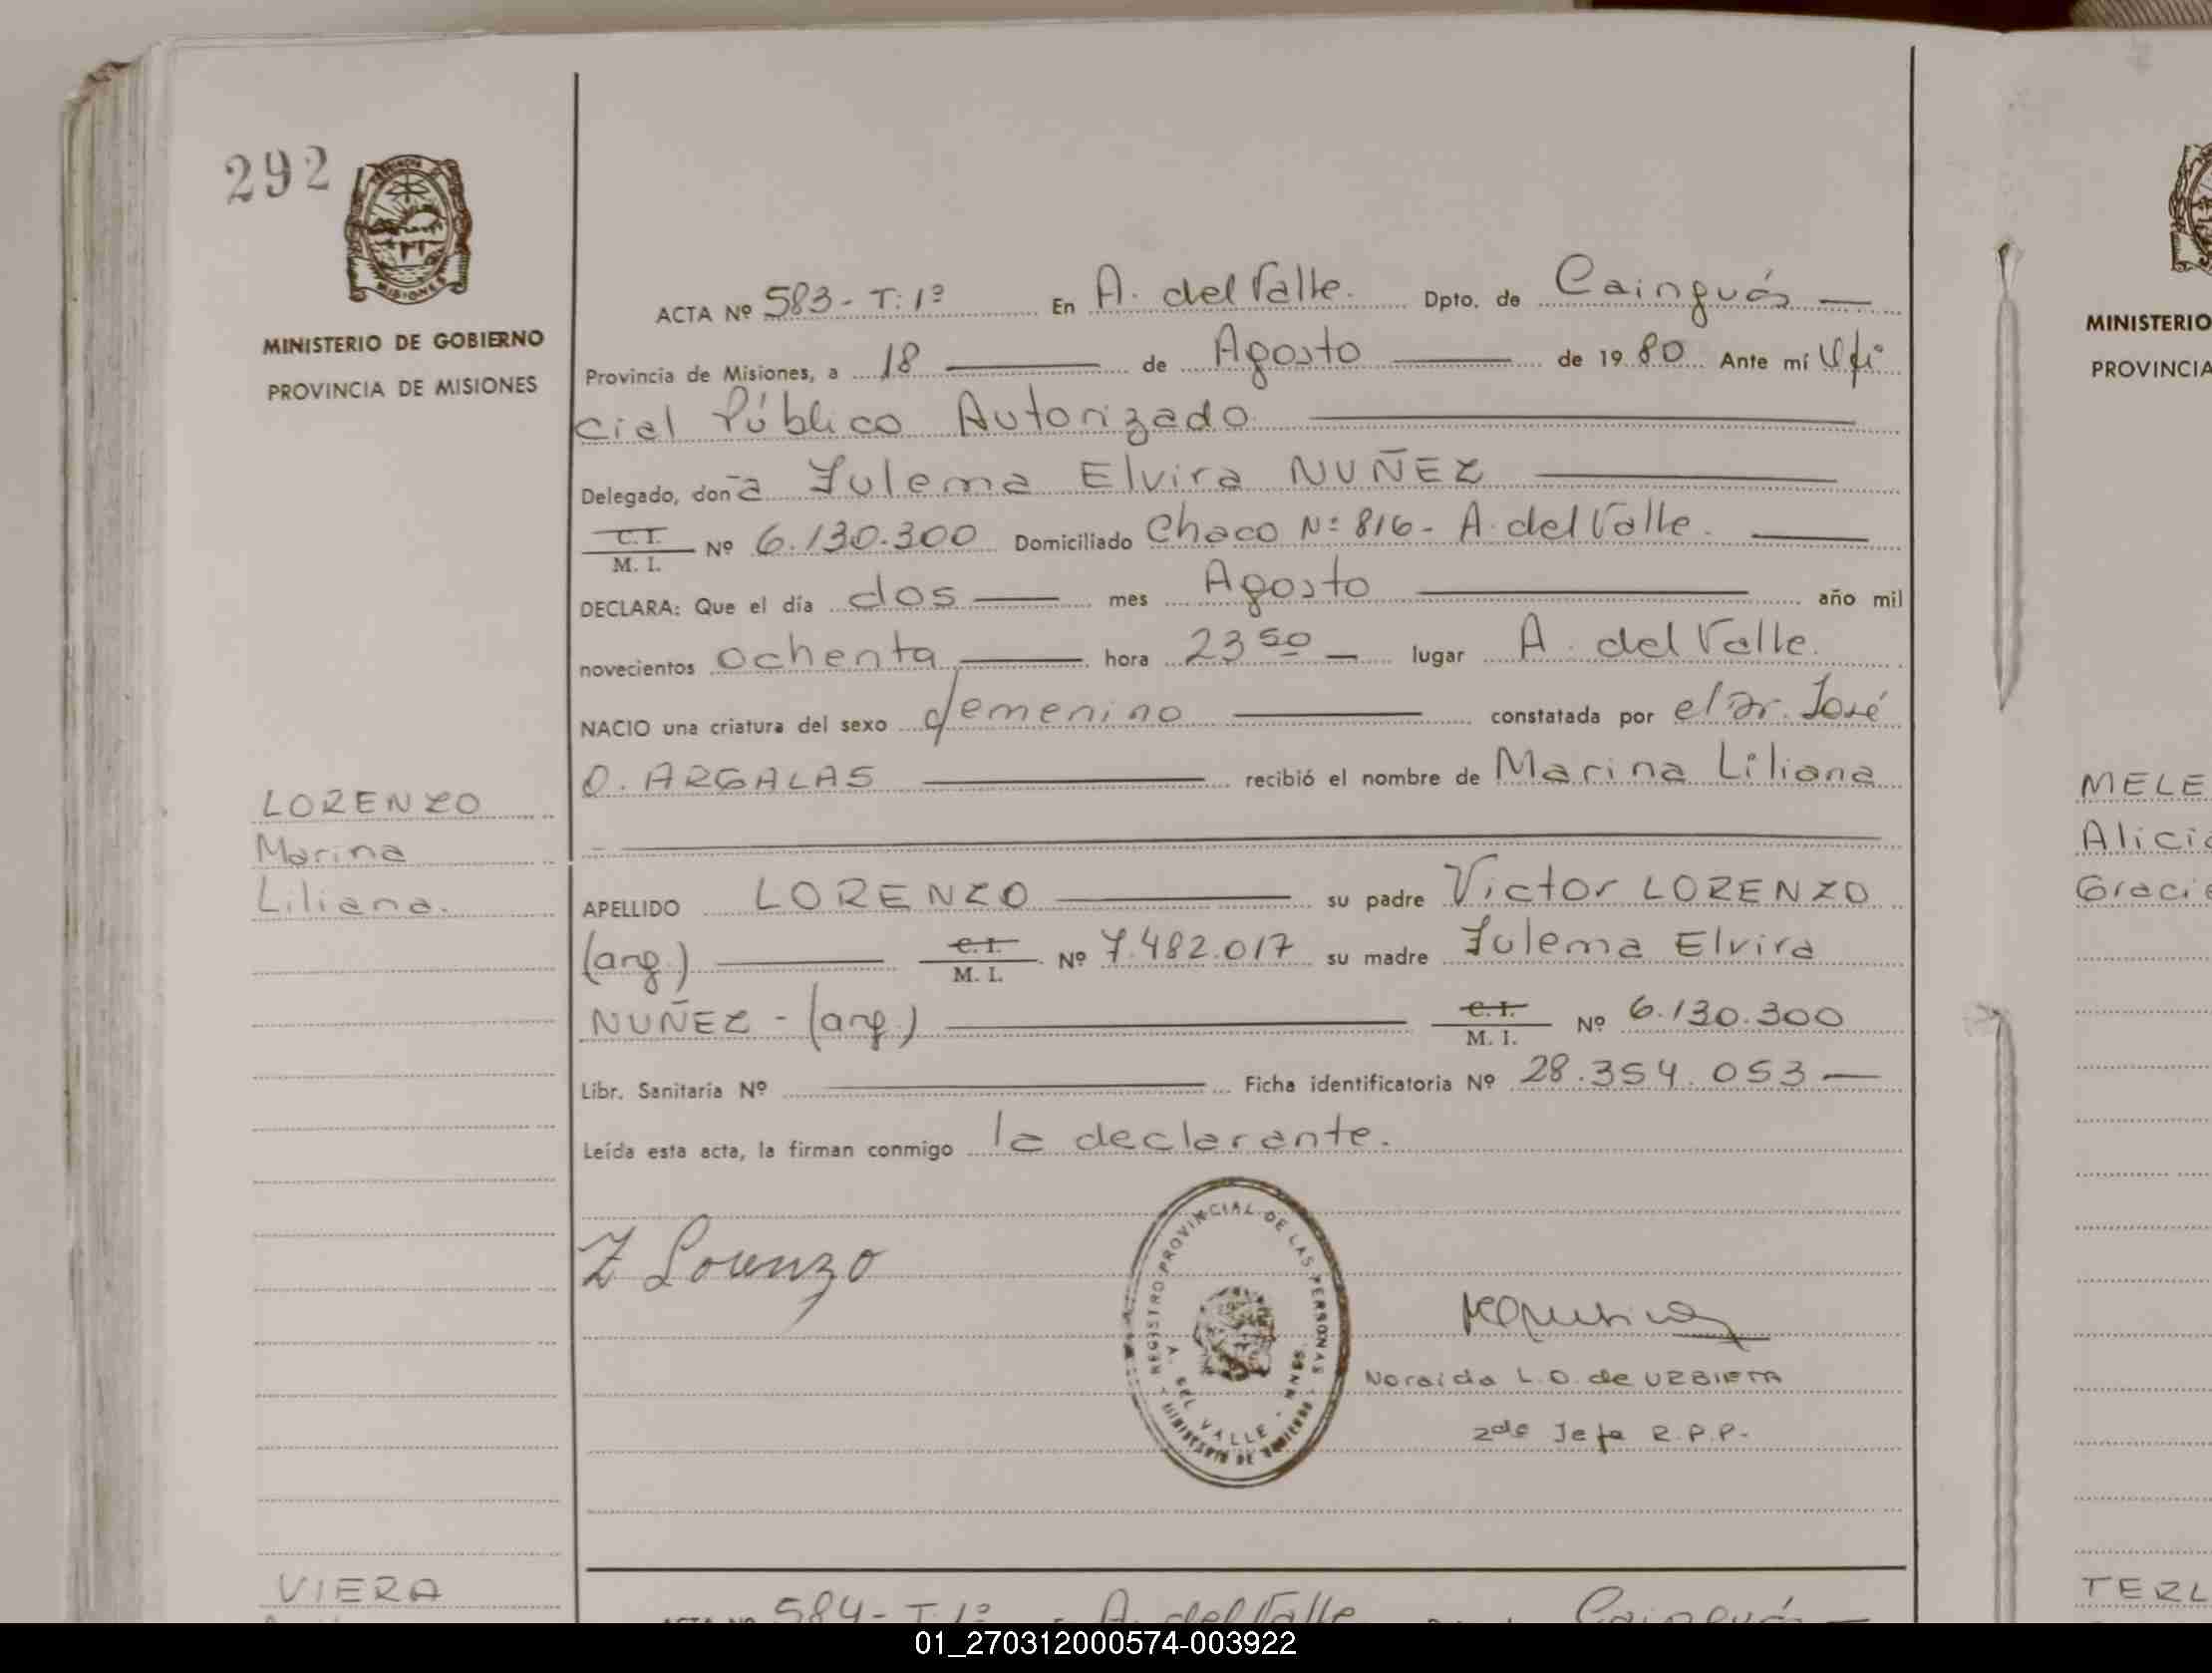 292
MINISTERIO DE GOBIERNO
PROVINCIA DE MISIONES
LORENZO
Marina
Liliana.
VIERA
ACTA Nº 583 - T: 1º En A. del Valle. Dpto. de Cainguás
Provincia de Misiones, a 18 de Agosto de 1980 Ante mí Ofi
cial Público Autorizado
Delegado, doña Zulema Elvira NUÑEZ
C. I.
M. I. Nº 6.130.300 Domiciliado Chaco Nº 816 - A. del Valle.
DECLARA: Que el día dos mes Agosto año mil
novecientos ochenta hora 23 50 lugar A. del Valle.
NACIO una criatura del sexo femenino constatada por el Dr. José
O. ARGALAS recibió el nombre de Marina Liliana
APELLIDO LORENZO su padre Victor LORENZO
(arg.) C. I. M. I. Nº 7.482.017 su madre Zulema Elvira
NUÑEZ - (arg.) C. I. M. I. Nº 6.130.300
Libr. Sanitaria Nº Ficha identificatoria Nº 28.354.053
Leída esta acta, la firman conmigo la declarante.
Z Lorenzo
REGISTRO PROVINCIAL DE LAS PERSONAS
A. DEL VALLE - MNES.
MINISTERIO DE GOBIERNO
Noraida L. O. de URBIETA
2do Jefe R.P.P.
584 - T. 1º A. del Valle Cainguás
MINISTERIO
PROVINCIA
MELE
Alicia
Gracie
TERL
01_270312000574-003922